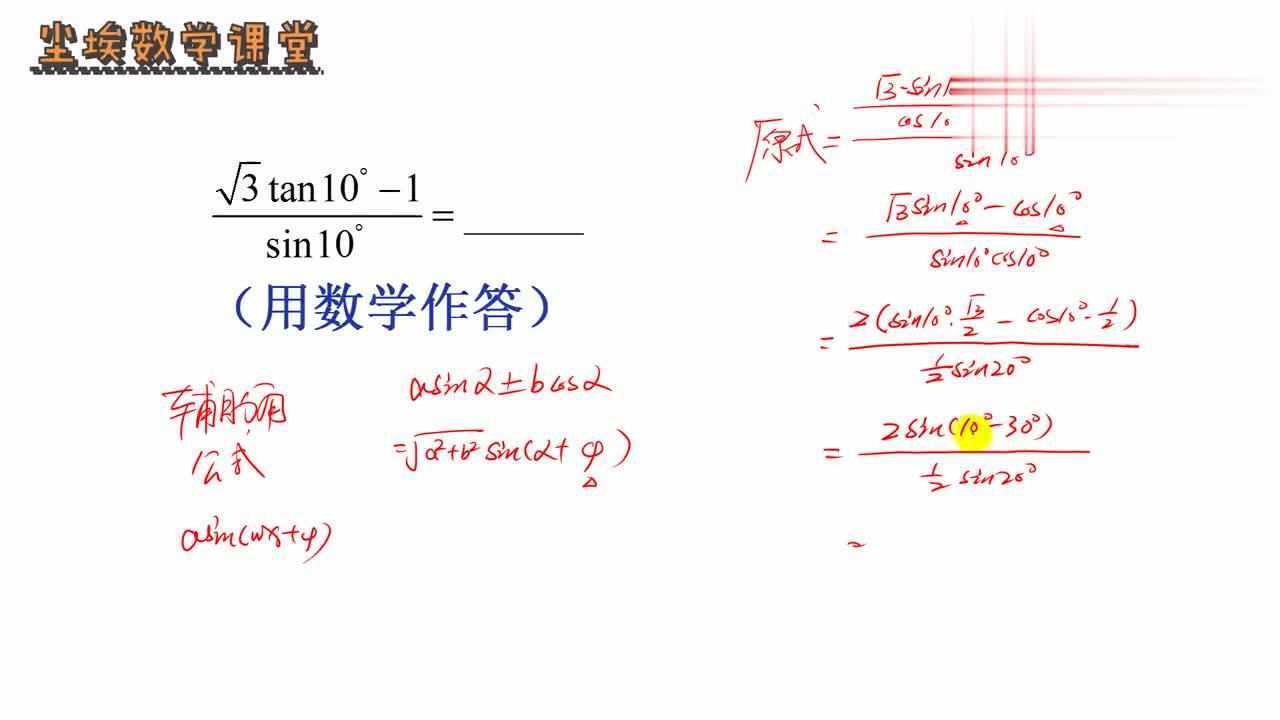 尘埃数学课堂
√3 tan10° −1
sin10°
= ______
（用数学作答）
辅助角
公式
asin(wx+φ)
asinα±bcosα
=√a²+b² sin(α+ φ)
原式=
√3·sin1
cos10
sin10
= √3sin10°−cos10°
sin10°cos10°
= 2(sin10°·√3/2 − cos10°·1/2)
1/2 sin20°
= 2sin(10°−30°)
1/2 sin20°
=